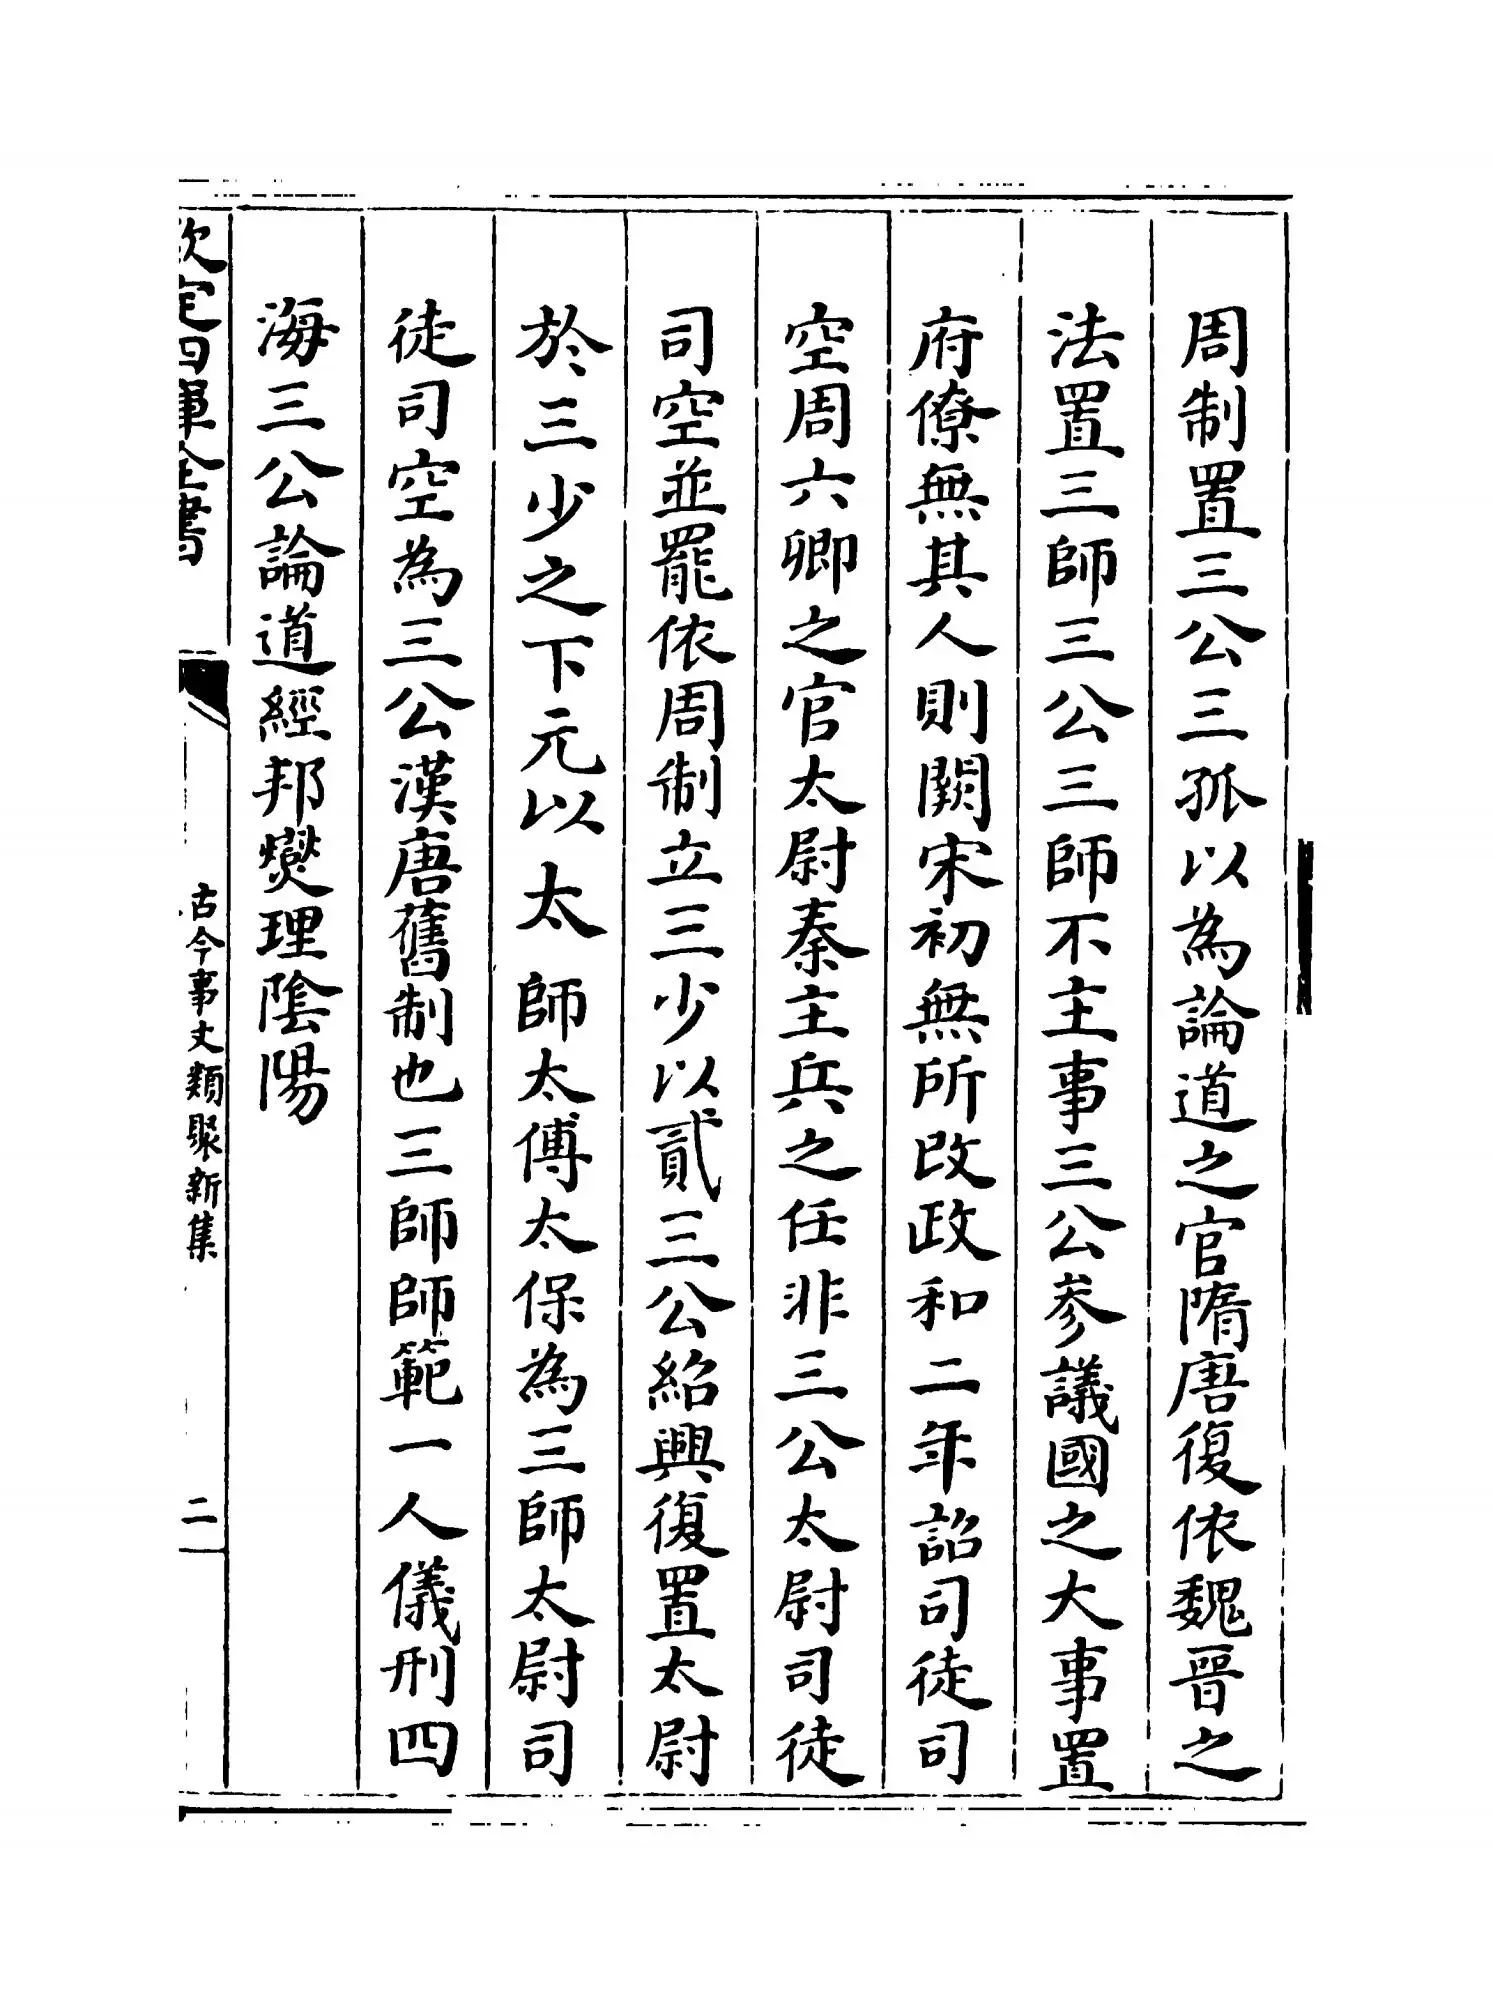 周制置三公三孤以為論道之官隋唐復依魏晉之
法置三師三公三師不主事三公參議國之大事置
府僚無其人則闕宋初無所改政和二年詔司徒司
空周六卿之官太尉秦主兵之任非三公太尉司徒
司空並罷依周制立三少以貳三公紹興復置太尉
於三少之下元以太師太傅太保為三師太尉司
徒司空為三公漢唐舊制也三師師範一人儀刑四
海三公論道經邦燮理陰陽
欽定四庫全書
古今事文類聚新集
二